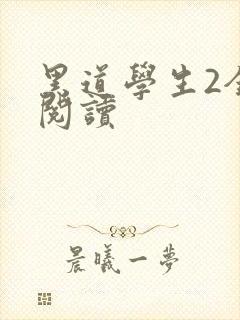 黑道學生2全
閱讀
晨曦一夢